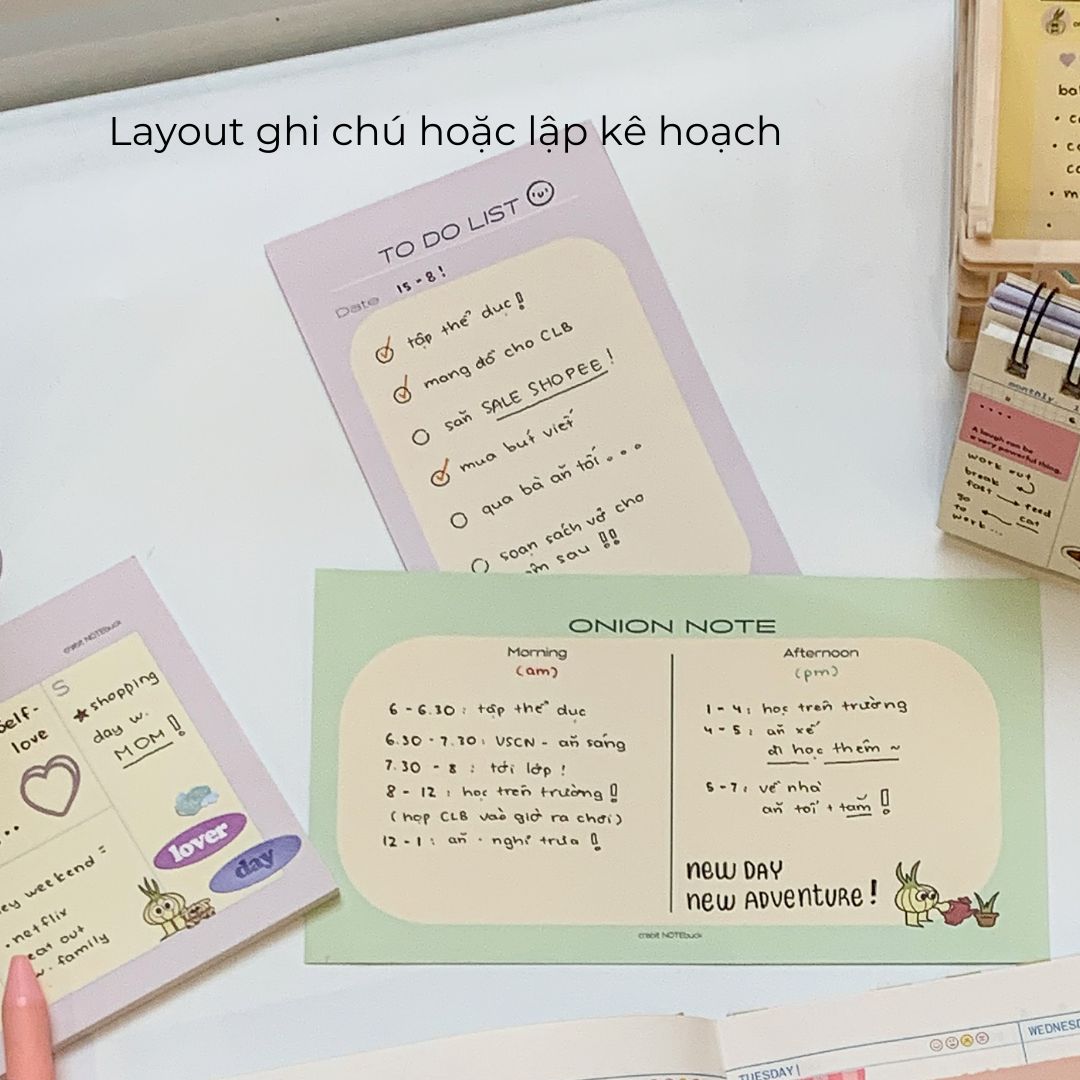 Layout ghi chú hoặc lập kê hoạch
TO DO LIST
Date 15 - 8!
tập thể dục!
mang đồ cho CLB
săn SALE SHOPEE!
mua bút viết
qua bà ăn tối...
soạn sách vở cho
sau !!
ONION NOTE
Morning
(am)
6 - 6.30 : tập thể dục
6.30 - 7.20 : VSCN - ăn sáng
7.30 - 8 : tới lớp !
8 - 12 : học trên trường !
(họp CLB vào giờ ra chơi)
12 - 1 : ăn - nghỉ trưa !
Afternoon
(pm)
1 - 4 : học trên trường
4 - 5 : ăn xế
đi học thêm ~
5 - 7 : về nhà
ăn tối + tắm !
new DAY
new ADVENTURE!
crabit NOTEbuck
crabit NOTEbuck
self-
love
S
★ shopping
day w.
MOM !
lover
day
weekend :
. netflix
eat out
w. family
monthly
A laugh can be
a very powerful thing.
work out
break
fast → feed
go cat
to
work...
TUESDAY
WEDNESD